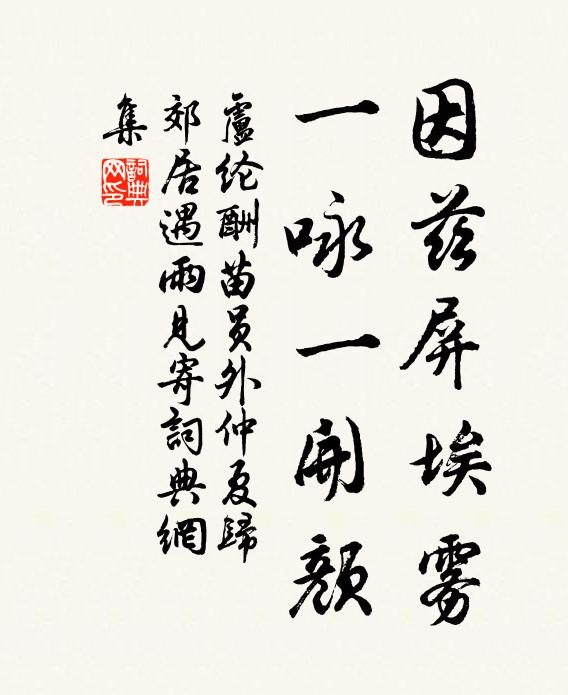 因兹屏埃雾
一咏一開顔
盧纶酬苗员外仲夏歸
郊居遇雨见寄詞典網
集
詞典
网印